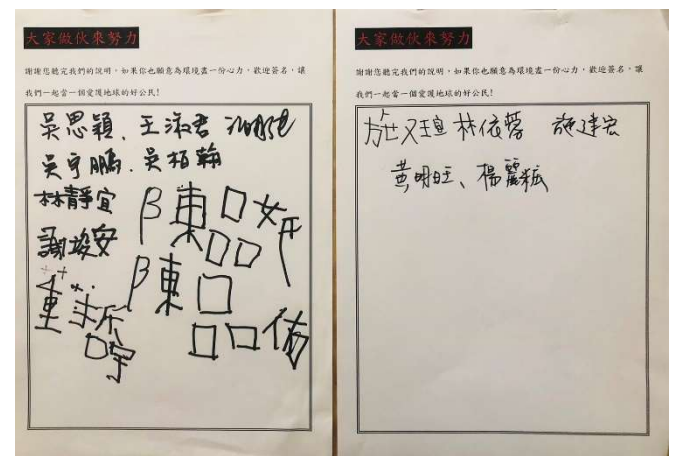 大家做伙來努力
謝謝您聽完我們的說明，如果你也願意為環境盡一份心力，歡迎簽名，讓
我們一起當一個愛護地球的好公民!
吳思穎、王淑君
吳宇鵬、吳柏翰
林靜宜
謝竣安
陳品妍
陳品佑
大家做伙來努力
謝謝您聽完我們的說明，如果你也願意為環境盡一份心力，歡迎簽名，讓
我們一起當一個愛護地球的好公民!
施又瑄 林依蓉 施建宏
黃明旺、楊麗紘